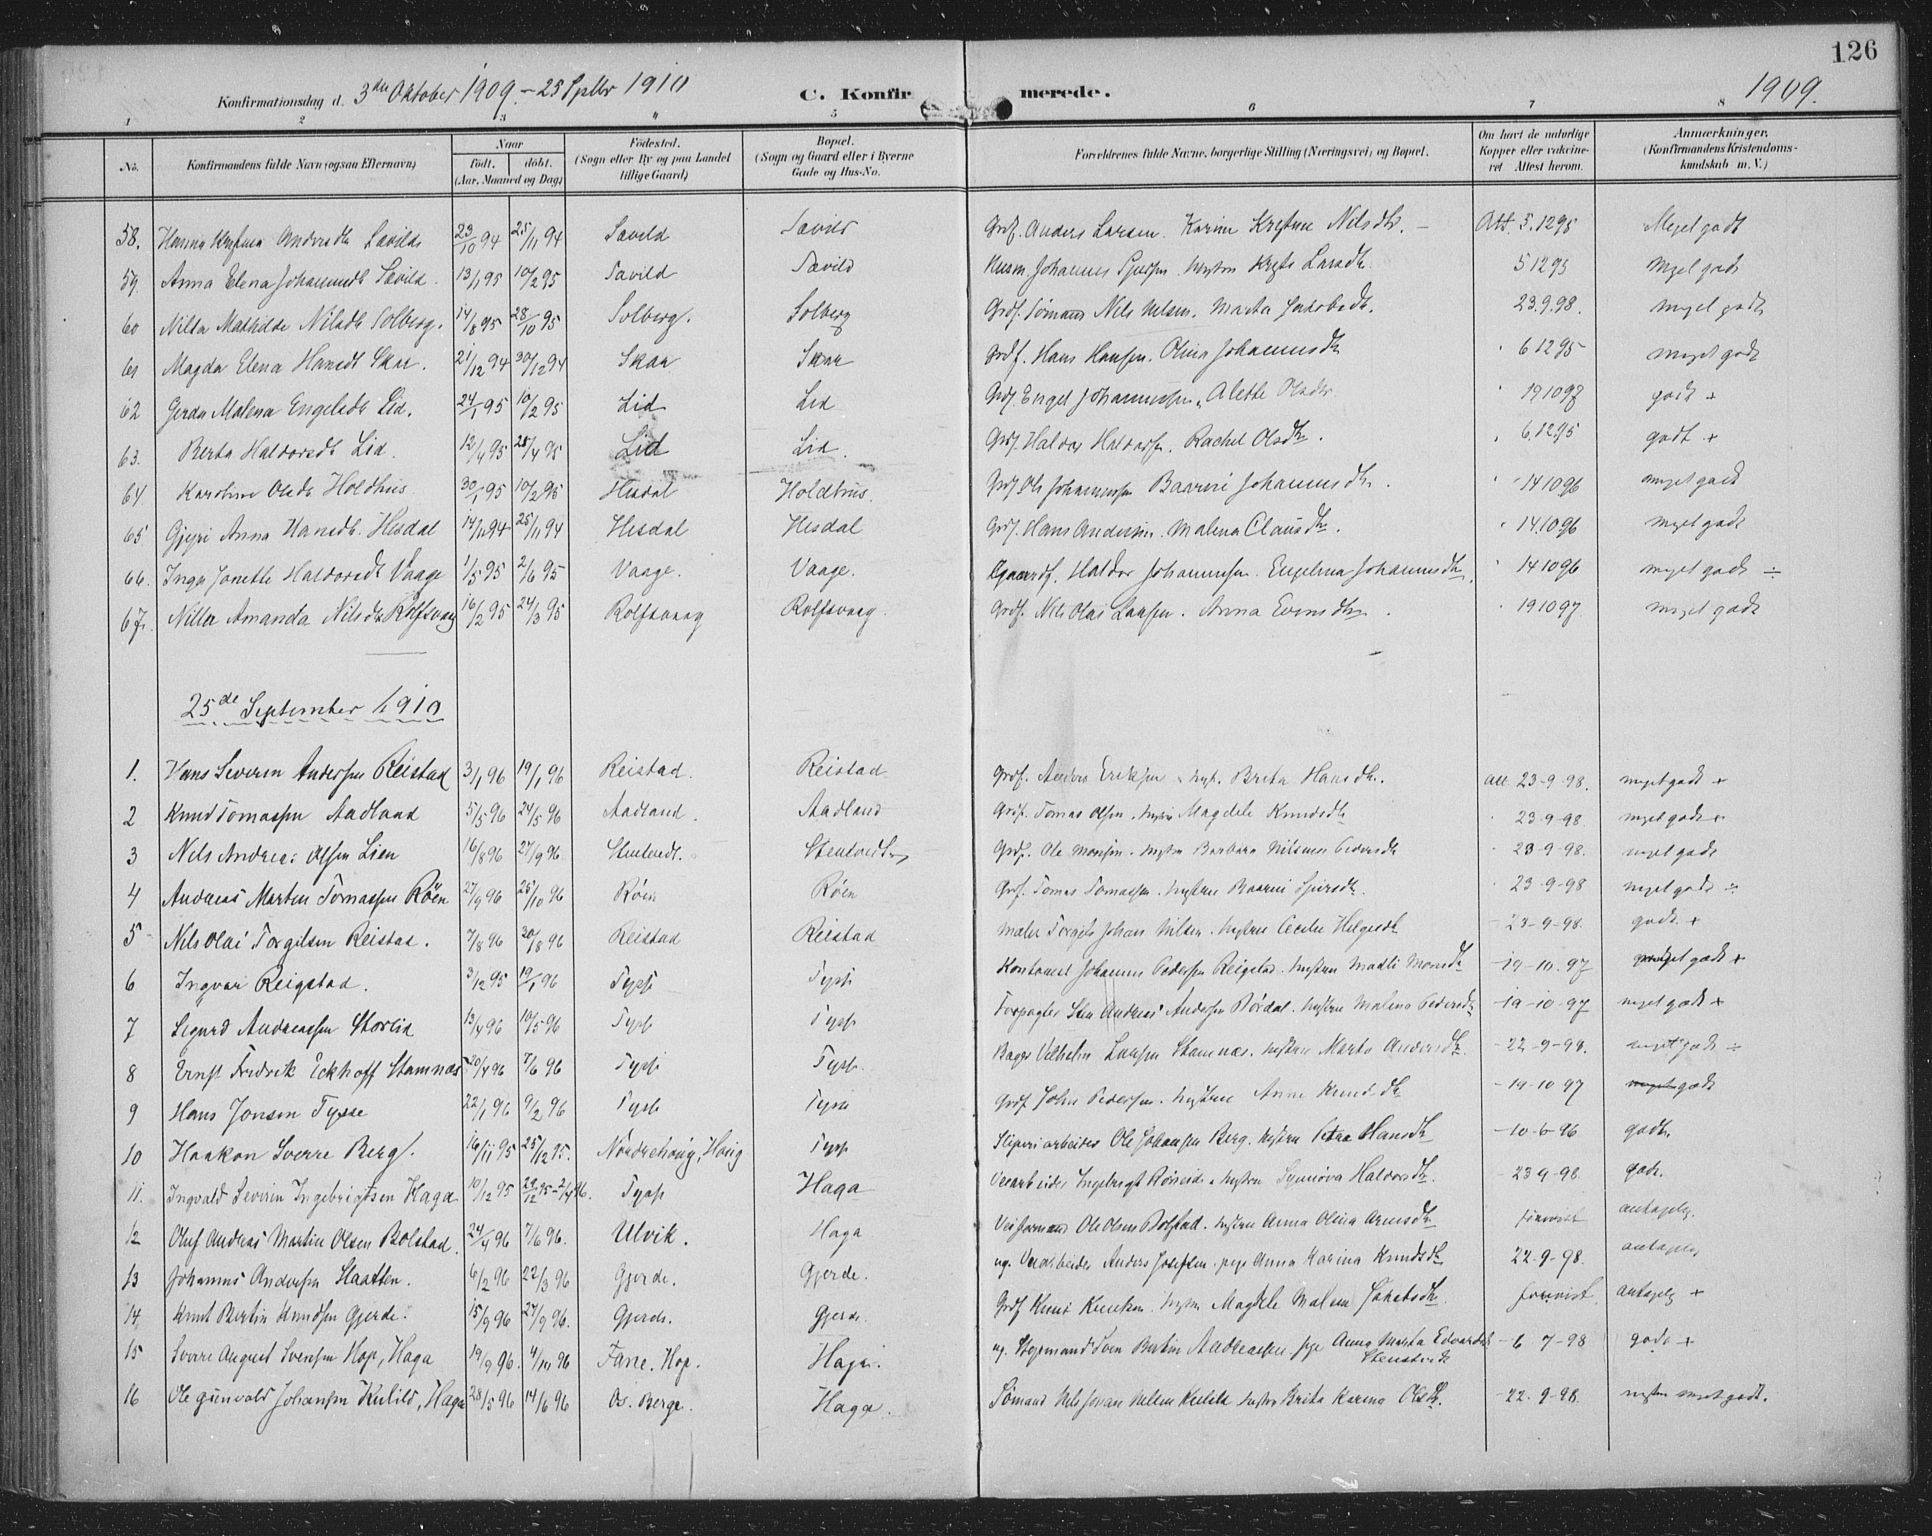 126
Konfirmationsdag d. 3die Oktober 1909 - 25 Sptbr 1910 C. Konfirmerede. 1909.
1 2 3 4 5 6 7 8
No. Konfirmandens fulde Navn (ogsaa Efternavn) Naar født. døbt. (Aar, Maaned og Dag) Fødested. (Sogn eller By og paa Landet tillige Gaard) Bopæl. (Sogn og Gaard eller i Byerne Gade og Hus-No. Forældrenes fulde Navne, borgerlige Stilling (Næringsvei) og Bopæl. Om havt de naturlige Kopper eller vaccineret Attest herom. Anmærkninger. (Konfirmandens Kristendomskundskab m. V.)
58. Hanna Andersdt Sævild 23/10 94 25/11 94 Sævild Sævild Grdf. Anders Larsen. Karine Kristine Nilsdtr. Att. 5.12 95 Meget godt
59. Anna Elena Johannesdt Sævild 13/1 95 10/2 95 Sævild Sævild Johannes Larsdtr. 5 12 95 meget godt
60 Nilsa Mathilde Nilsdt Solberg. 14/8 95 28/10 95 Solberg. Solberg Nils Nilsen. Marta Jakobsdtr. 23.9.98. meget godt
61 Magda Elena Hansdt Skar. 21/12 94 30/12 94 Skaar Skaar Grdf. Hans Hansen. Oline Johannesdtr 6 12 95 meget godt
62 Gerda Malena Engelsdt Lid. 24/1 95 10/2 95 Lid Lid Grdf. Engel Johannessen, Alette Olsdtr 19 10 97 godt +
63. Berta Haldorsdt Lid. 12/4 95 28/4 95 Lid Lid. Grdf. Haldor Haldorsen. Rachel Olsdtr. 6.12 95 godt +
64 Karoline Olsdt Holdhus 30/1 95 10/2 95 Hisdal Holdhus. Grdf. Ole Johannessen Baarni Johannesdtr. 14 10 96 meget godt
65 Gjyri Anna Hansdt. Hisdal 14/11 94 25/11 94 Hisdal Hisdal Grdf. Hans Andersen. Malena Clausdtr. 14.10 96 meget godt
66. Inga Jonette Haldorsdt Vaage 1/5 95 2/6 95 Vaage. Vaage. Haldor Johannessen. Engelina Johannesdtr. 14 10 96 meget godt ÷
67. Nille Amanda Nilsdt Rolfsvaag 16/2 95 24/3 95 Rolfsvaag Rolfsvaag. Grdf. Nils Olai Larsen. Anna Evensdtr. 19 10 97 meget godt
25de September 1910
1. Hans Severin Andersen Reistad 3/1 96 19/1 96 Reistad. Reistad Grdf. Anders Eriksen Brita Hansdtr. att. 23-9-98. meget godt +
2 Knud Tomassen Aadland 5/5 96 24/5 96 Aadland. Aadland Grdf. Tomas Olsen. hustru Magdele Knudsdtr 23-9-98. meget godt +
3 Nils Andreas Olsen Lien 16/8 96 27/9 96. Stenlvedt. Grdf. Ole Monsen. hustru Barbara 23-9-98. meget godt
4 Andreas Martin Tomassen Röen 27/9 96 25/10 96 Röen Röen Grdf. Tomas Tomassen. hustru Baarni 23-9-98 meget godt ÷
5 Nils Olai Torgilsen Reistad. 7/8 96 30/8 96 Reistad Reistad Maler Torgils Johan Nilsen. hustru Cecilie Helgesdtr - 23-9-98. godt. +
6 Ingvar Reigstad. 3/12 95 19/1 96 Tysse Tysse Kontorist Johannes Pedersen Reigstad. hustru Madli Monsdtr - 19-10-97 godt +
7 Sigurd Andreassen Storlid 13/4 96 10/5 96 Tysse Tysse Forpagter Sten Andreas Andersen hustru Malena Pedersdtr - 19-10-97 meget godt +
8 Ernst Fredrik Eckhoff Stamnæs 20/4 96 7/6 96 Tysse Tysse. Bager Vilhelm Larsen Stamnæs. hustru Marta Andersdtr. - 22-9-98. meget godt ÷
9 Hans Jonsen Tysse 22/1 96 9/2 96 Tysse Tysse Grdf John Pedersen. hustru Anne Knudsdtr - 19-10-97 meget godt
10 Haakon Sverre Berg. 16/11 95 25/12 95. Nordrehoug, Hønig Tysse Sliperiarbeider Ole Johansen Berg. hustru Petra Hansdtr - 10-6-96 godt.
11. Ingvald Severin Ingebrigtsen Haga 10/12 95 29/12 95 - 2/4 96. Tysse Haga Ingebrigt hustru Synnöva Haldorsdtr. - 23 9-98. godt.
12 Oluf Andreas Martin Olsen Bolstad. 24/4 96 7/6 96. Ulvik. Haga Veiformand Ole Olsen Bolstad. hustru Anna Olina Arnesdtr forevist antagelig.
13 Johannes Andersen Staatten. 6/2 96 22/3 96 Gjerde. Gjerde. ug. Anders Josefsen. pige Anna Karina Knudsdtr 22.-9-98. antagelig
14. Knut Bertin Knudsen Gjerde. 15/9 96 27/9 96. Gjerde. Gjerde. Grdf Knut Knutsen. hustru Magdele Malene Jakobsdtr. forevist. antagelig +
15 Sverre August Svensen Hop, Haga 19/9 96. 4/10 96 Fane. Hop. Haga. ug. Sven Bertin Andreassen. pige Anna Marta Edvardsdt - 6 7-98 godt +
16 Ole Gunvald Johansen Kulild, Haga 28/5 96 14/6 96 Os. Berge. Haga. Sømand Nils Johan Nilsen Kulild hustru Brita Karina Olsdtr. - 22. 9-98. meget godt.